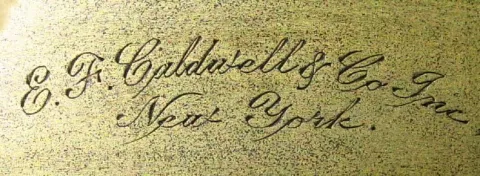 E. F. Caldwell & Co. Inc.
New York.